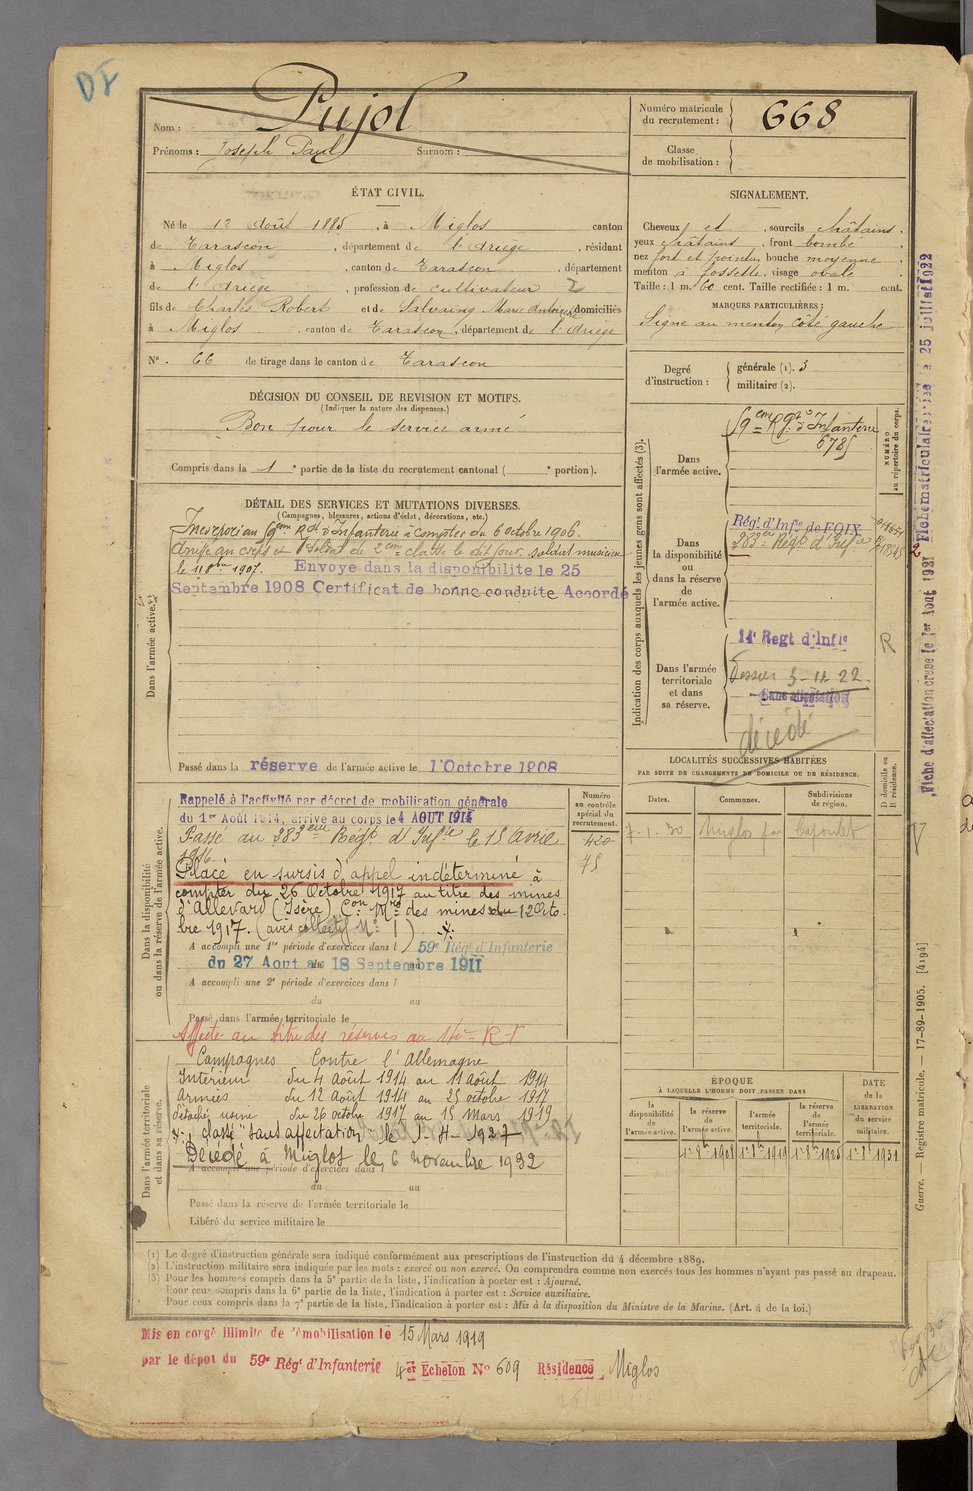 DF
Nom : Pujol
Prénoms : Joseph Paul Surnom :
Numéro matricule du recrutement : 668
Classe de mobilisation :
ÉTAT CIVIL.
Né le 12 Août 1885, à Miglos canton
de Tarascon, département de l'Ariège, résidant
à Miglos, canton de Tarascon, département
de l'Ariège, profession de cultivateur
fils de Charles Robert et de Salvaing Marie Antoinette domiciliés
à Miglos, canton de Tarascon, département de l'Ariège
N° 66 de tirage dans le canton de Tarascon
SIGNALEMENT.
Cheveux et, sourcils châtains,
yeux châtains, front bombé
nez fort et pointu, bouche moyenne
menton à fossette, visage ovale
Taille : 1 m. 60 cent. Taille rectifiée : 1 m. cent.
MARQUES PARTICULIÈRES :
Signe au menton côté gauche
Degré d'instruction : générale (1). 3
militaire (2).
DÉCISION DU CONSEIL DE REVISION ET MOTIFS.
(Indiquer la nature des dispenses.)
Bon pour le service armé
Compris dans la 1e partie de la liste du recrutement cantonal ( e portion).
DÉTAIL DES SERVICES ET MUTATIONS DIVERSES.
(Campagnes, blessures, actions d'éclat, décorations, etc.)
Dans l'armée active.
Incorporé au 59eme Rgt d'Infanterie à compter du 6 octobre 1906.
Arrivé au corps et soldat de 2eme classe le dit jour. soldat musicien
le 11 8bre 1907. Envoyé dans la disponibilité le 25
Septembre 1908 Certificat de bonne conduite Accordé
Passé dans la réserve de l'armée active le 1 Octobre 1908
Indication des corps auxquels les jeunes gens sont affectés (3).
NUMÉRO au répertoire du corps.
Dans l'armée active.
59eme Rgt d'Infanterie
6785
Dans la disponibilité ou dans la réserve de l'armée active.
Régt d'Infie de FOIX
283e Régt d'Infie
Dans l'armée territoriale et dans sa réserve.
14e Regt d'Infie
R
Dossier 3-11-22
Sans affectation
décédé
LOCALITÉS SUCCESSIVES HABITÉES
PAR SUITE DE CHANGEMENTS DE DOMICILE OU DE RÉSIDENCE.
D domicile ou R résidence.
Dates. Communes. Subdivisions de région.
7-1-30 Miglos par Capoulet
Dans la disponibilité ou dans la réserve de l'armée active.
Numéro au contrôle spécial du recrutement.
420
75
Rappelé à l'activité par décret de mobilisation générale
du 1er Août 1914, arrivé au corps le 4 AOUT 1914
Passé au 283eme Régt d'Infie le 15 Avril
1916.
Placé en sursis d'appel indéterminé à
compter du 26 Octobre 1917 au titre des mines
d'Allevard (Isère) Con Mre des mines du 12 Octo-
bre 1917. (avis collectif N° 1)
A accompli une 1re période d'exercices dans l 59e Régt d'Infanterie
du 27 Aout au 18 Septembre 1911
A accompli une 2e période d'exercices dans l
du au
Passé dans l'armée territoriale le
Affecté au titre des réserves au 14e R-I
Dans l'armée territoriale et dans sa réserve.
Campagnes Contre l'Allemagne
Intérieur du 4 Août 1914 au 11 Août 1914
Armées du 12 Août 1914 au 25 octobre 1917
détaché usine du 26 octobre 1917 au 15 Mars 1919
classé "sans affectation" le 1-4-1927
Décédé à Miglos le 6 novembre 1932
A accompli une période d'exercices dans l
du au
Passé dans la réserve de l'armée territoriale le
Libéré du service militaire le
ÉPOQUE
À LAQUELLE L'HOMME DOIT PASSER DANS
la disponibilité de l'armée active. la réserve de l'armée active. l'armée territoriale. la réserve de l'armée territoriale.
DATE de la LIBÉRATION du service militaire.
1er 8bre 1908 1er 8bre 1919 1er 8bre 1925 1er 8bre 1931
(1) Le degré d'instruction générale sera indiqué conformément aux prescriptions de l'instruction du 4 décembre 1889.
(2) L'instruction militaire sera indiquée par les mots : exercé ou non exercé. On comprendra comme non exercés tous les hommes n'ayant pas passé au drapeau.
(3) Pour les hommes compris dans la 5e partie de la liste, l'indication à porter est : Ajourné.
Pour ceux compris dans la 6e partie de la liste, l'indication à porter est : Service auxiliaire.
Pour ceux compris dans la 7e partie de la liste, l'indication à porter est : Mis à la disposition du Ministre de la Marine. (Art. 4 de la loi.)
Mis en congé illimité de démobilisation le 15 Mars 1919
par le dépôt du 59e Régt d'Infanterie 4e Echelon N° 609 Résidence Miglos
Fiche d'affectation créée le 1er Août 1921 Fiche matriculaire créée le 25 juillet 1922
Guerre. — Registre matricule. — 17-89-1905. [4194]